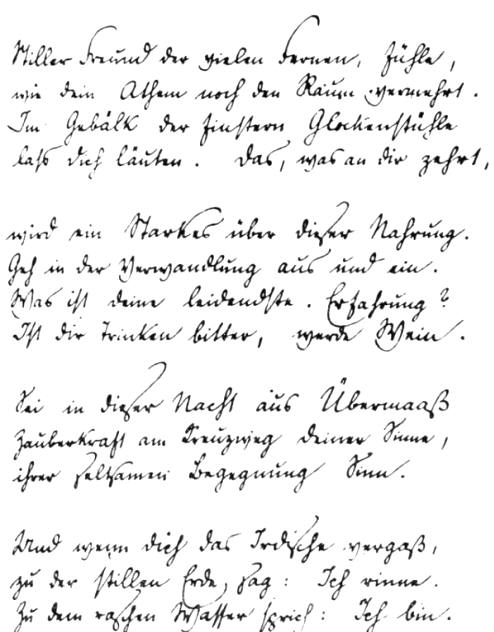 Stiller Freund der vielen Fernen, fühle,
wie dein Athem noch den Raum vermehrt.
Im Gebälk der finstern Glockenstühle
laß dich läuten. Das, was an dir zehrt,
wird ein Starkes über dieser Nahrung.
Geh in der Verwandlung aus und ein.
Was ist deine leidendste Erfahrung?
Ist dir Trinken bitter, werde Wein.
Sei in dieser Nacht aus Übermaaß
Zauberkraft am Kreuzweg deiner Sinne,
ihrer seltsamen Begegnung Sinn.
Und wenn dich das Irdische vergaß,
zu der stillen Erde sag: Ich rinne.
Zu dem raschen Wasser sprich: Ich bin.